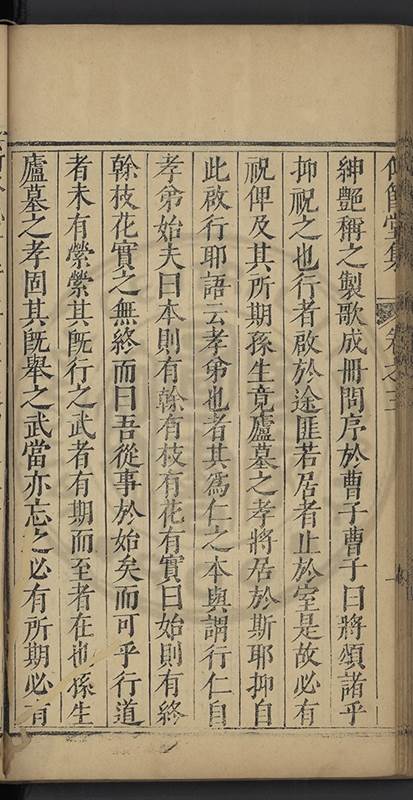 仰節堂集
卷之三
紳艷稱之製歌成冊問序於曹子曹子曰將頌諸乎
抑祝之也行者啟於途匪若居者止於室是故必有
祝俾及其所期孫生竟廬墓之孝將居於斯耶抑自
此啟行耶語云孝弟也者其為仁之本與謂行仁自
孝弟始夫曰本則有榦有枝有花有實曰始則有終
榦枝花實之無終而曰吾從事於始矣而可乎行道
者未有縈縈其既行之武者有期而至者在也孫生
廬墓之孝固其既舉之武當亦忘之必有所期必有